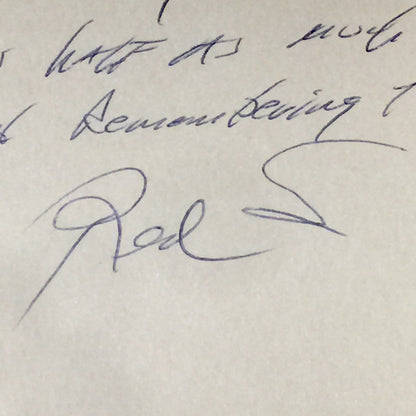 half as much
Remembering
Red S